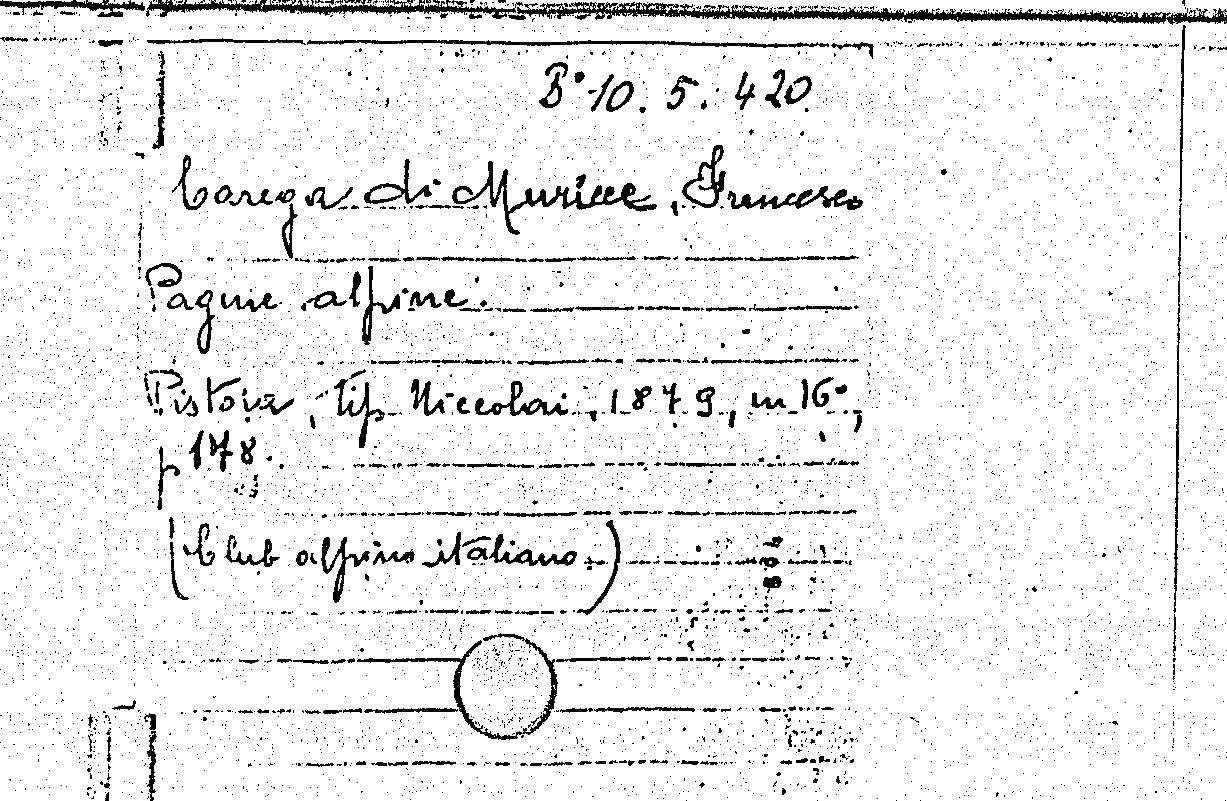 B° 10. 5. 420
Carega di Muricce, Francesco
Pagine alpine.
Pistoia, tip Niccolai, 1879, in 16°,
p 178.
(Club alpino italiano.)